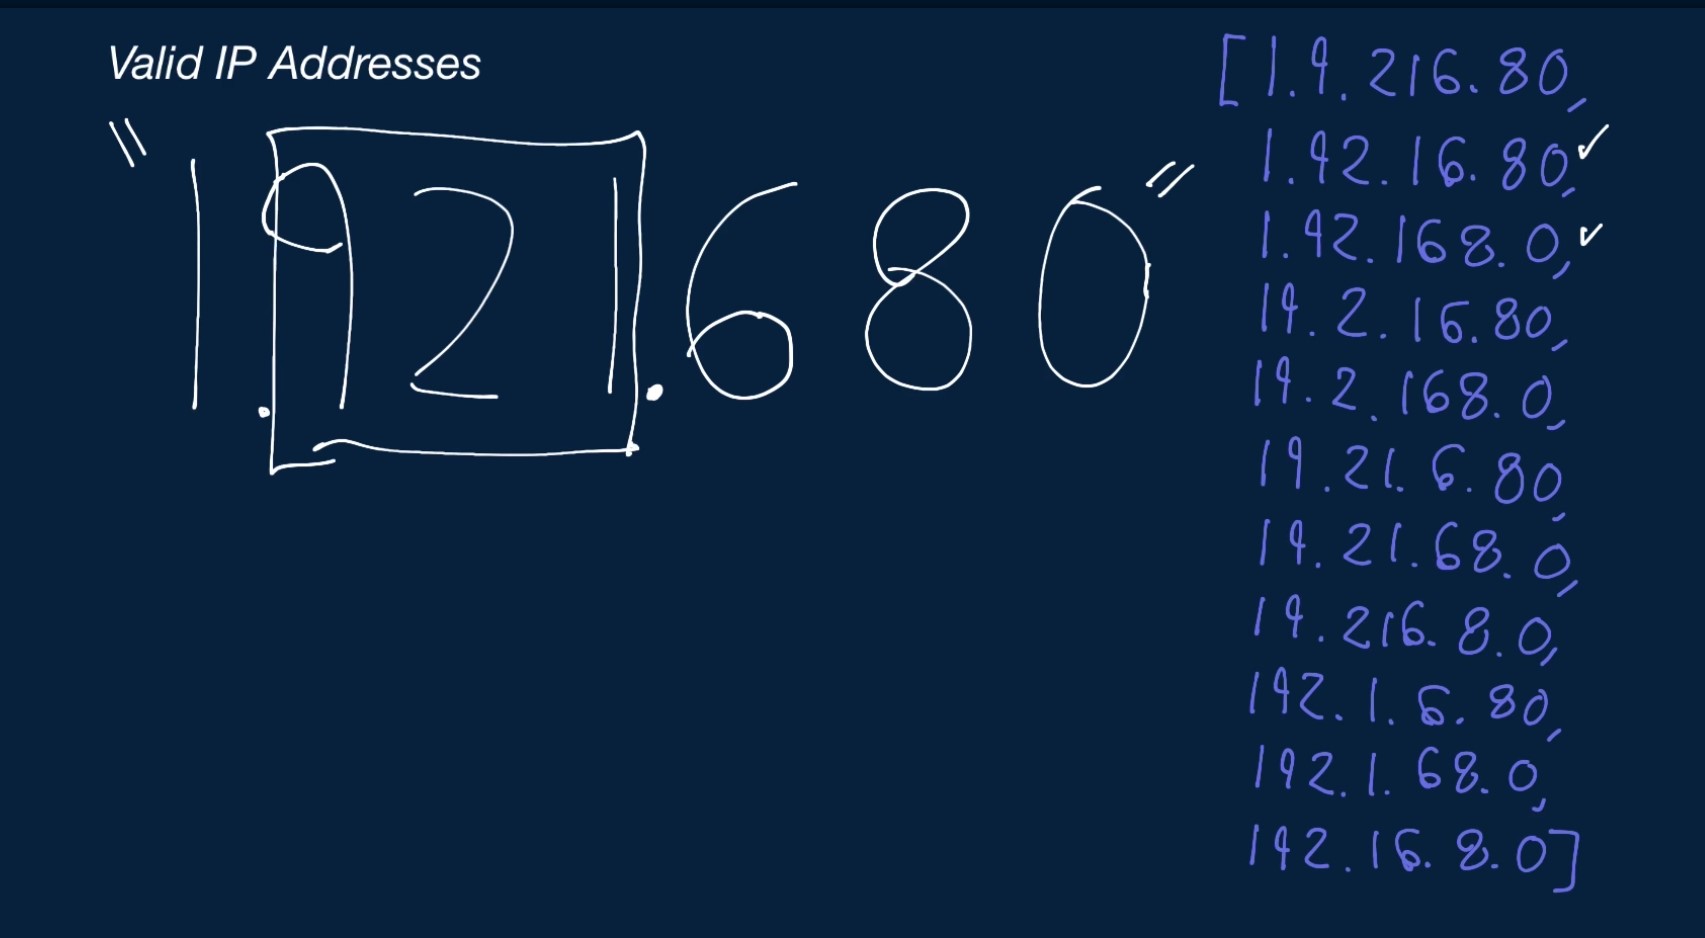 Valid IP Addresses
"1.921.680"
[1.9.216.80,
1.92.16.80,✓
1.92.168.0,✓
19.2.16.80,
19.2.168.0,
19.21.6.80,
19.21.68.0,
19.216.8.0,
192.1.6.80,
192.1.68.0,
192.16.8.0]